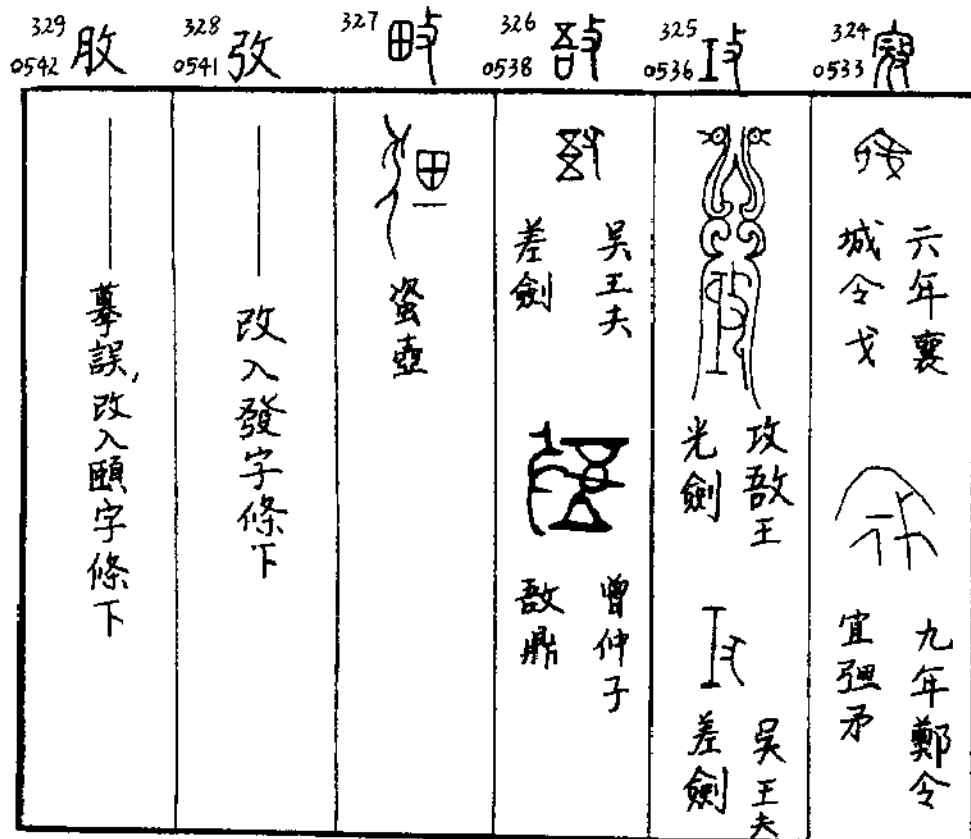 324
0533
六年襄
城令戈
九年鄭令
宜彊矛
325
0536
攻
攻敔王
光劍
吳王夫
差劍
326
0538
敔
吳王夫
差劍
曾仲子
敔鼎
327
䀫壺
328
0541
弢
改入發字條下
329
0542
摹誤,改入頤字條下